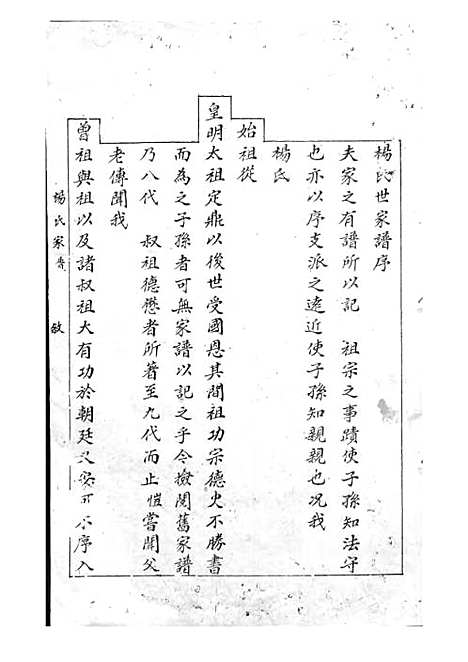 楊氏世家譜序
夫家之有譜所以記 祖宗之事蹟使子孫知法守
也亦以序支派之遠近使子孫知親親也况我
楊氏
始祖從
皇明太祖定鼎以後世受國恩其間祖功宗德史不勝書
而為之子孫者可無家譜以記之乎今檢閱舊家譜
乃八代 叔祖德懋者所著至九代而止愷嘗聞父
老傳聞我
曾祖與祖以及諸叔祖大有功於朝廷又安可不序入
楊氏家譜 敘